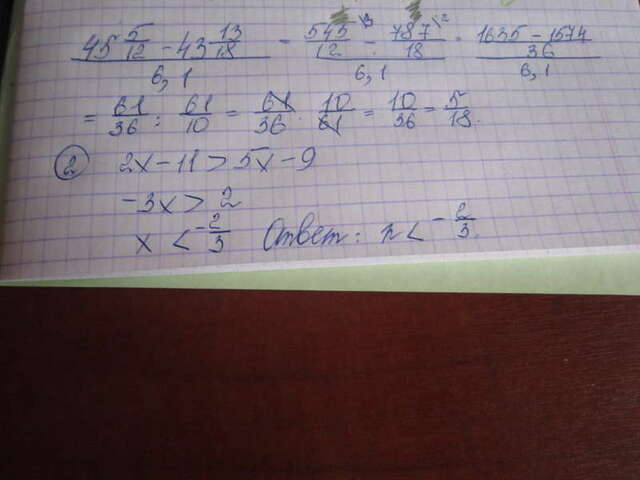 (45 5/12 - 43 13/18)/6,1 = (545\3/12 - 787\2/18)/6,1 = ((1635 - 1574)/36)/6,1
= 61/36 : 61/10 = 61/36 · 10/61 = 10/36 = 5/18.
2 2x - 11 > 5x - 9
-3x > 2
x < -2/3 Ответ: x < -2/3.